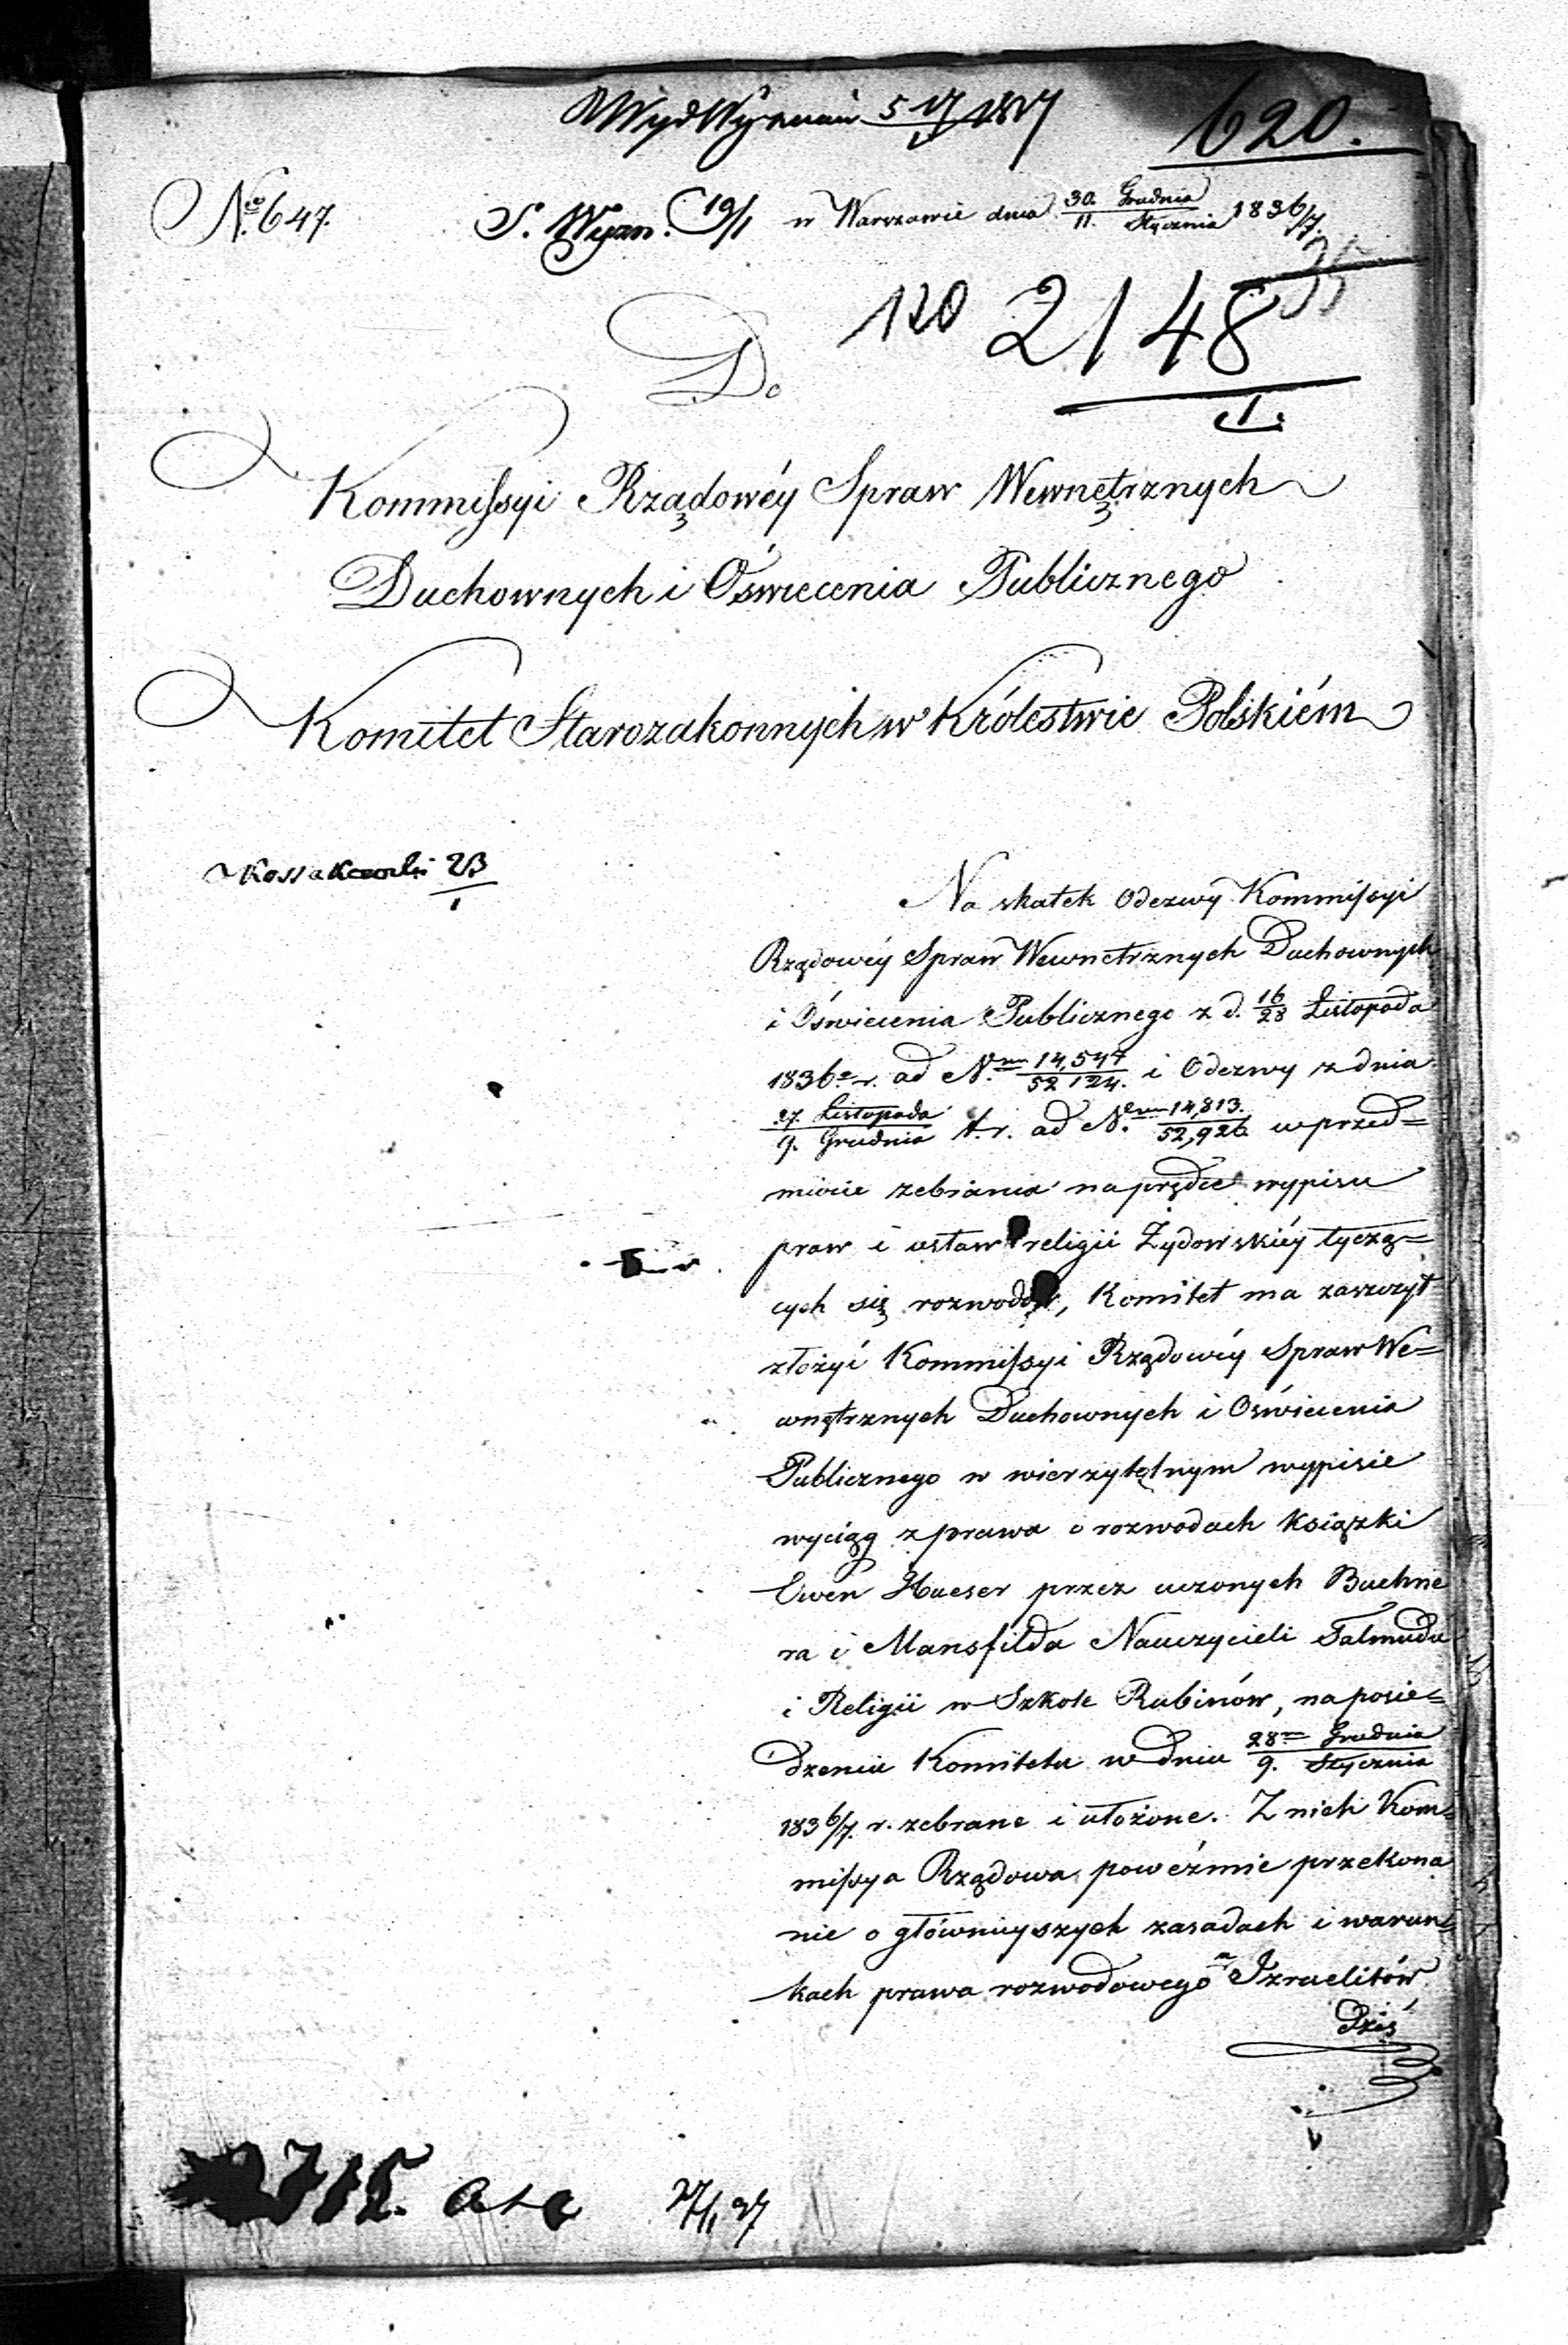 620.
Nro 647.
S. Wyzn. 19/1 w Warszawie dnia 30. Grudnia / 11. Stycznia 1836/7.
2148
1.
Do
Kommissyi Rządowéy Spraw Wewnętrznych
Duchownych i Oświecenia Publicznego
Komitet Starozakonnych w Królestwie Polskiém
Kossakowski 23/1
Na skutek Odezwy Kommissyi
Rządowéy Spraw Wewnetrznych Duchownych
i Oświecenia Publicznego z d. 16/28 Listopada
1836 r. ad Num 14,547/52124. i Odezwy z dnia
27. Listopada / 9. Grudnia t. r. ad Num 14,813./52,926 w przed=
miocie zebrania naprędce wypisu
praw i ustaw religii Żydowskiéy tyczą=
cych się rozwodów, Komitet ma zaszczyt
złożyć Kommissyi Rządowéy Spraw We=
wnętrznych Duchownych i Oświecenia
Publicznego w wierzytelnym wypisie
wyciąg z prawa o rozwodach książki
Ewen Haeser przez uczonych Buchne
ra i Mansfilda Nauczycieli Talmudu
i Religii w Szkole Rabinów, na posie=
dzeniu Komitetu w dniu 28 Grudnia / 9. Stycznia
1836/7. r. zebrane i ułożone. Z nich Kom=
missya Rządowa poweźmie przekona
nie o główniejszych zasadach i warun=
kach prawa rozwodowego u Izraelitów.
Dziś